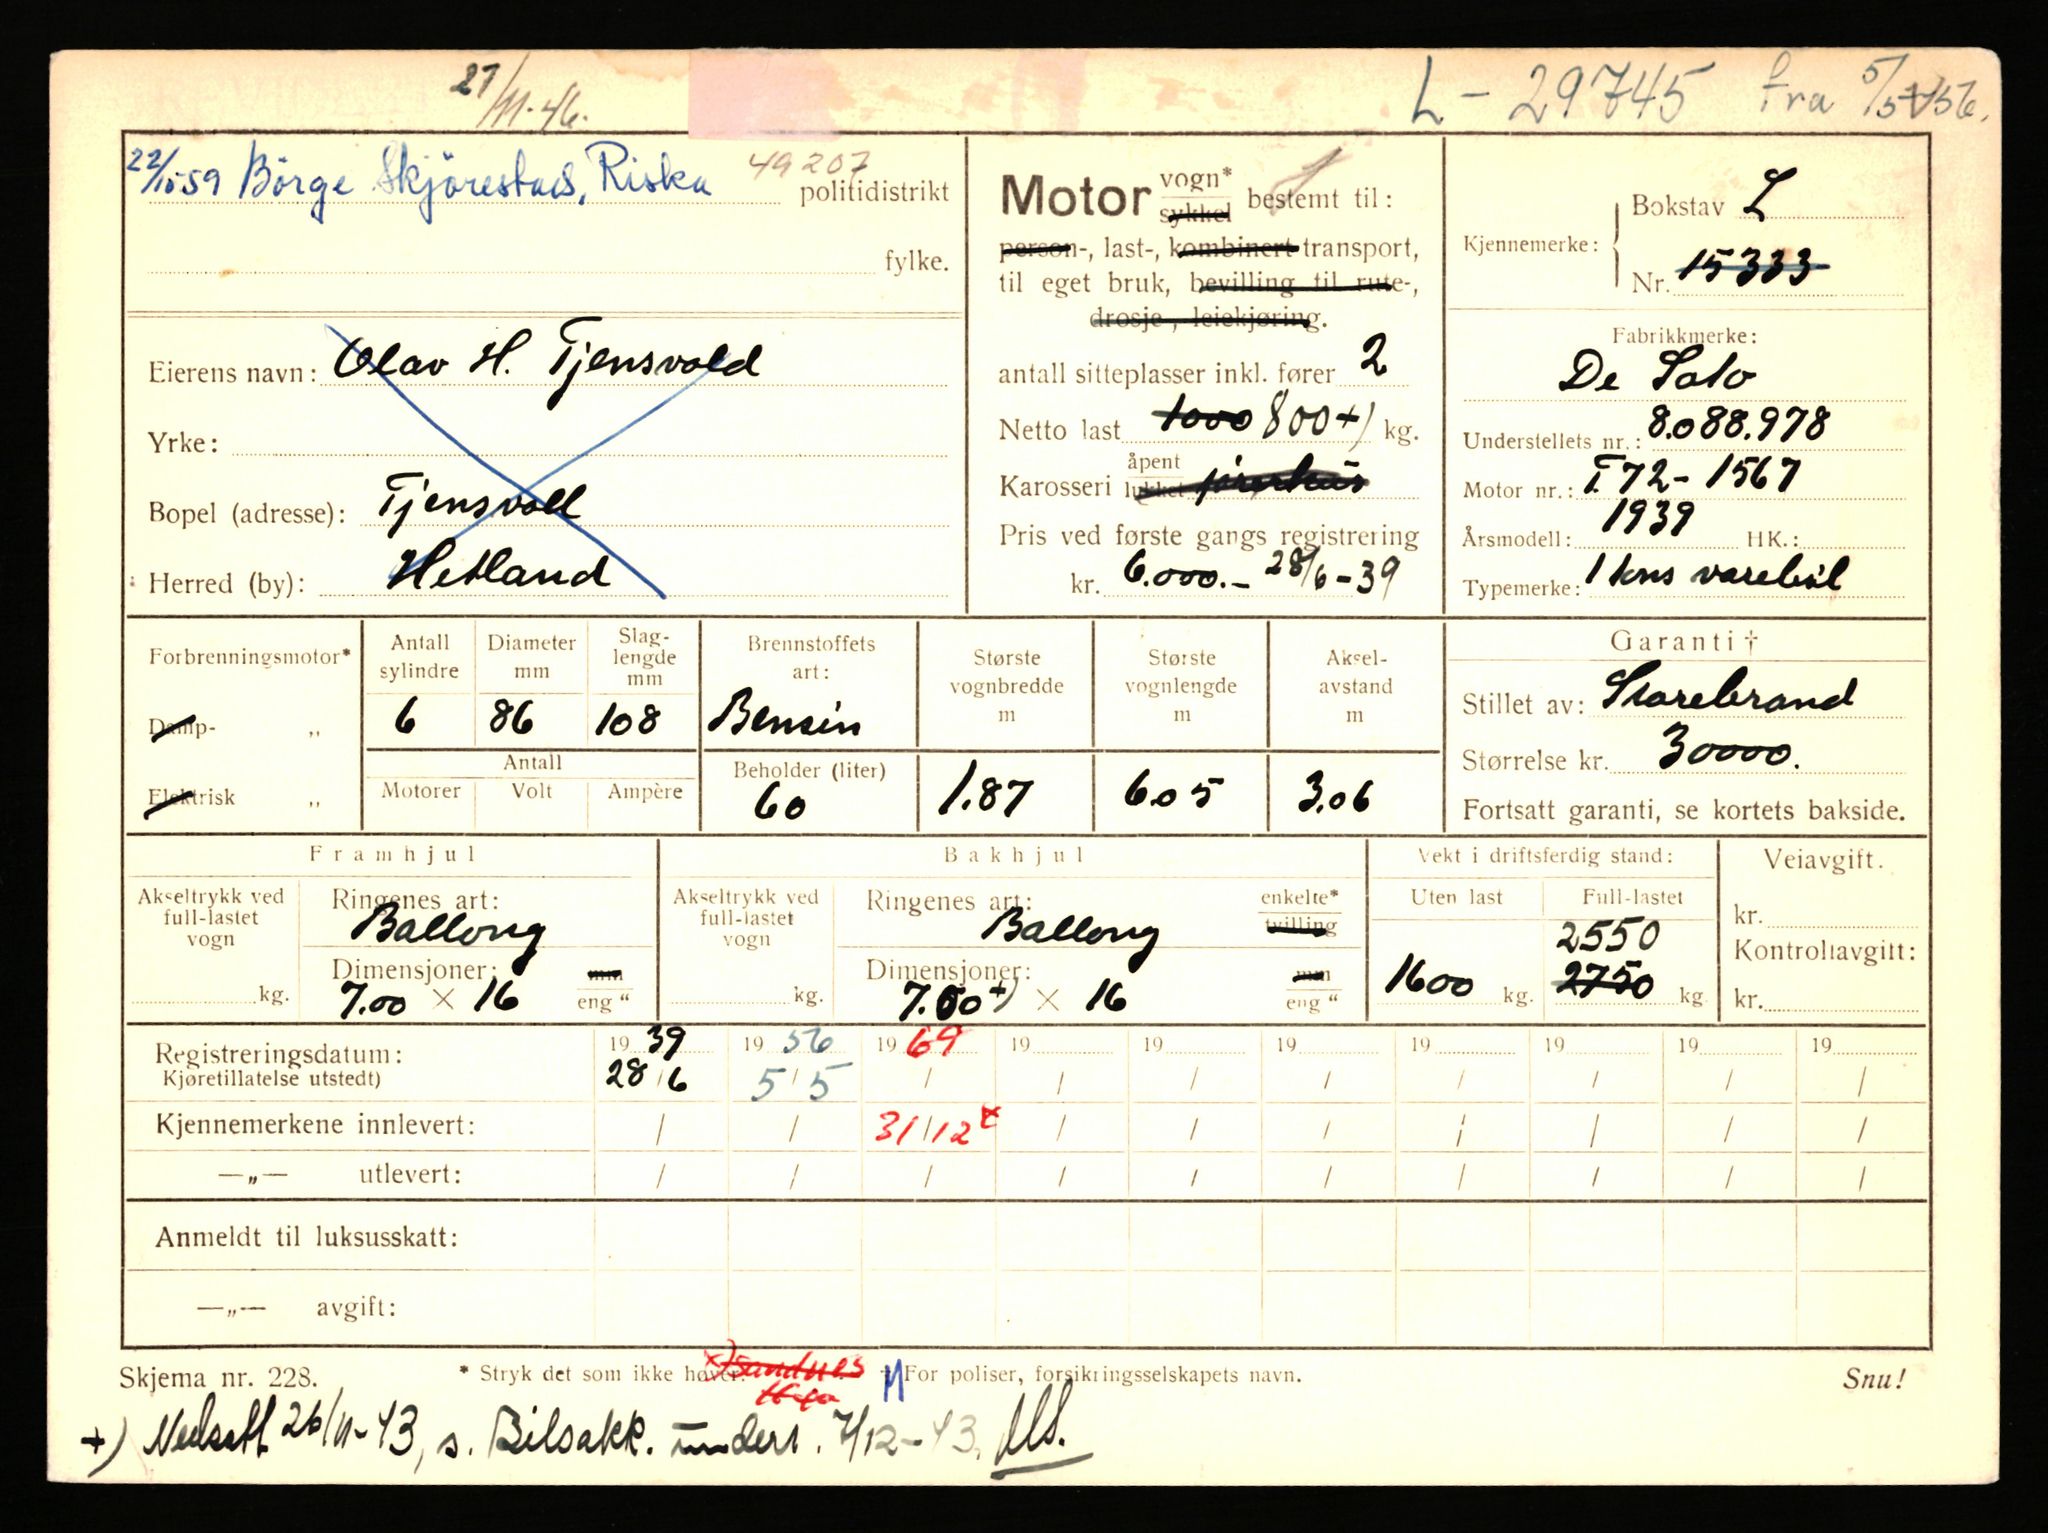 27/11-46.
L - 29745 fra 5/5-56.
22/10-59 Börge Skjörestad, Riska
49207
politidistrikt
fylke.
Eierens navn: Olav H. Tjensvold
Yrke:
Bopel (adresse): Tjensvoll
Herred (by): Hetland
Motor vogn* sykkel bestemt til:
person-, last-, kombinert transport,
til eget bruk, bevilling til rute-,
drosje-, leiekjøring.
antall sitteplasser inkl. fører 2
Netto last 1000 800 +) kg.
Karosseri åpent lukket førerhus
Pris ved første gangs registrering
kr. 6.000.- 28/6-39
Kjennemerke: Bokstav L
Nr. 15333
Fabrikkmerke:
De Soto
Understellets nr.: 8.088.978
Motor nr.: T.72-1567
Årsmodell: 1939 HK.:
Typemerke: 1 tons varebil
Forbrenningsmotor*
Damp- „
Elektrisk „
Antall sylindre 6
Diameter mm 86
Slag-lengde mm 108
Antall
Motorer Volt Ampère
Brennstoffets art: Bensin
Beholder (liter) 60
Største vognbredde m 1.87
Største vognlengde m 6.05
Aksel-avstand m 3.06
Garanti †
Stillet av: Storebrand
Størrelse kr. 30000.
Fortsatt garanti, se kortets bakside.
Framhjul
Akseltrykk ved full-lastet vogn
kg.
Ringenes art: Ballong
Dimensjoner: mm
7.00 × 16 eng "
Bakhjul
Akseltrykk ved full-lastet vogn
kg.
Ringenes art: Ballong enkelte* tvilling
Dimensjoner: mm
7.00 +) × 16 eng "
Vekt i driftsferdig stand:
Uten last 1600 kg.
Full-lastet 2550 2750 kg.
Veiavgift.
kr.
Kontrollavgift:
kr.
Registreringsdatum: 19 39 19 56 19 69 19 19 19 19 19 19 19
Kjøretillatelse utstedt) 28/6 5/5 / / / / / / / /
Kjennemerkene innlevert: / / 31/12 x / / / / / / /
—„— utlevert: / / / / / / / / / /
Anmeldt til luksusskatt:
—„— avgift:
Skjema nr. 228. * Stryk det som ikke høver. x) Sandnes M For poliser, forsikringsselskapets navn. Snu!
+) Nedsatt 26/11-43, s. Bilsakk. unders. 7/12-43.